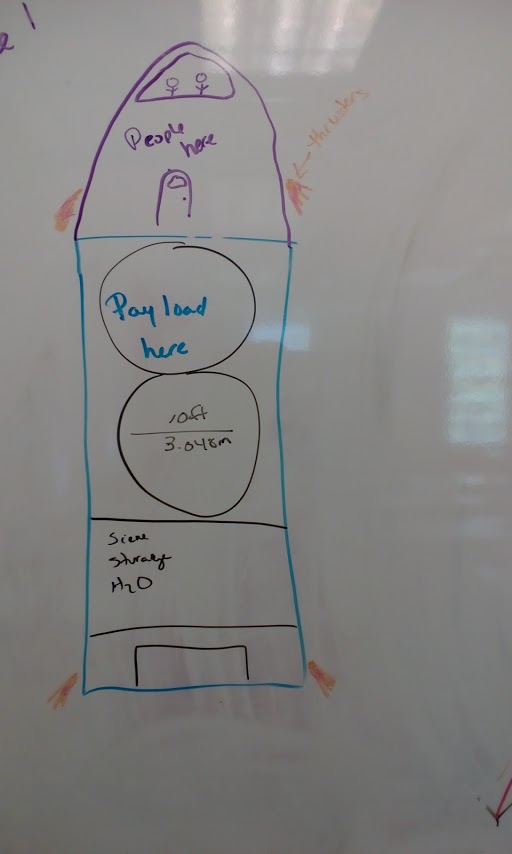 People
here
thrusters
Payload
here
10ft
3.048m
storage
H₂O